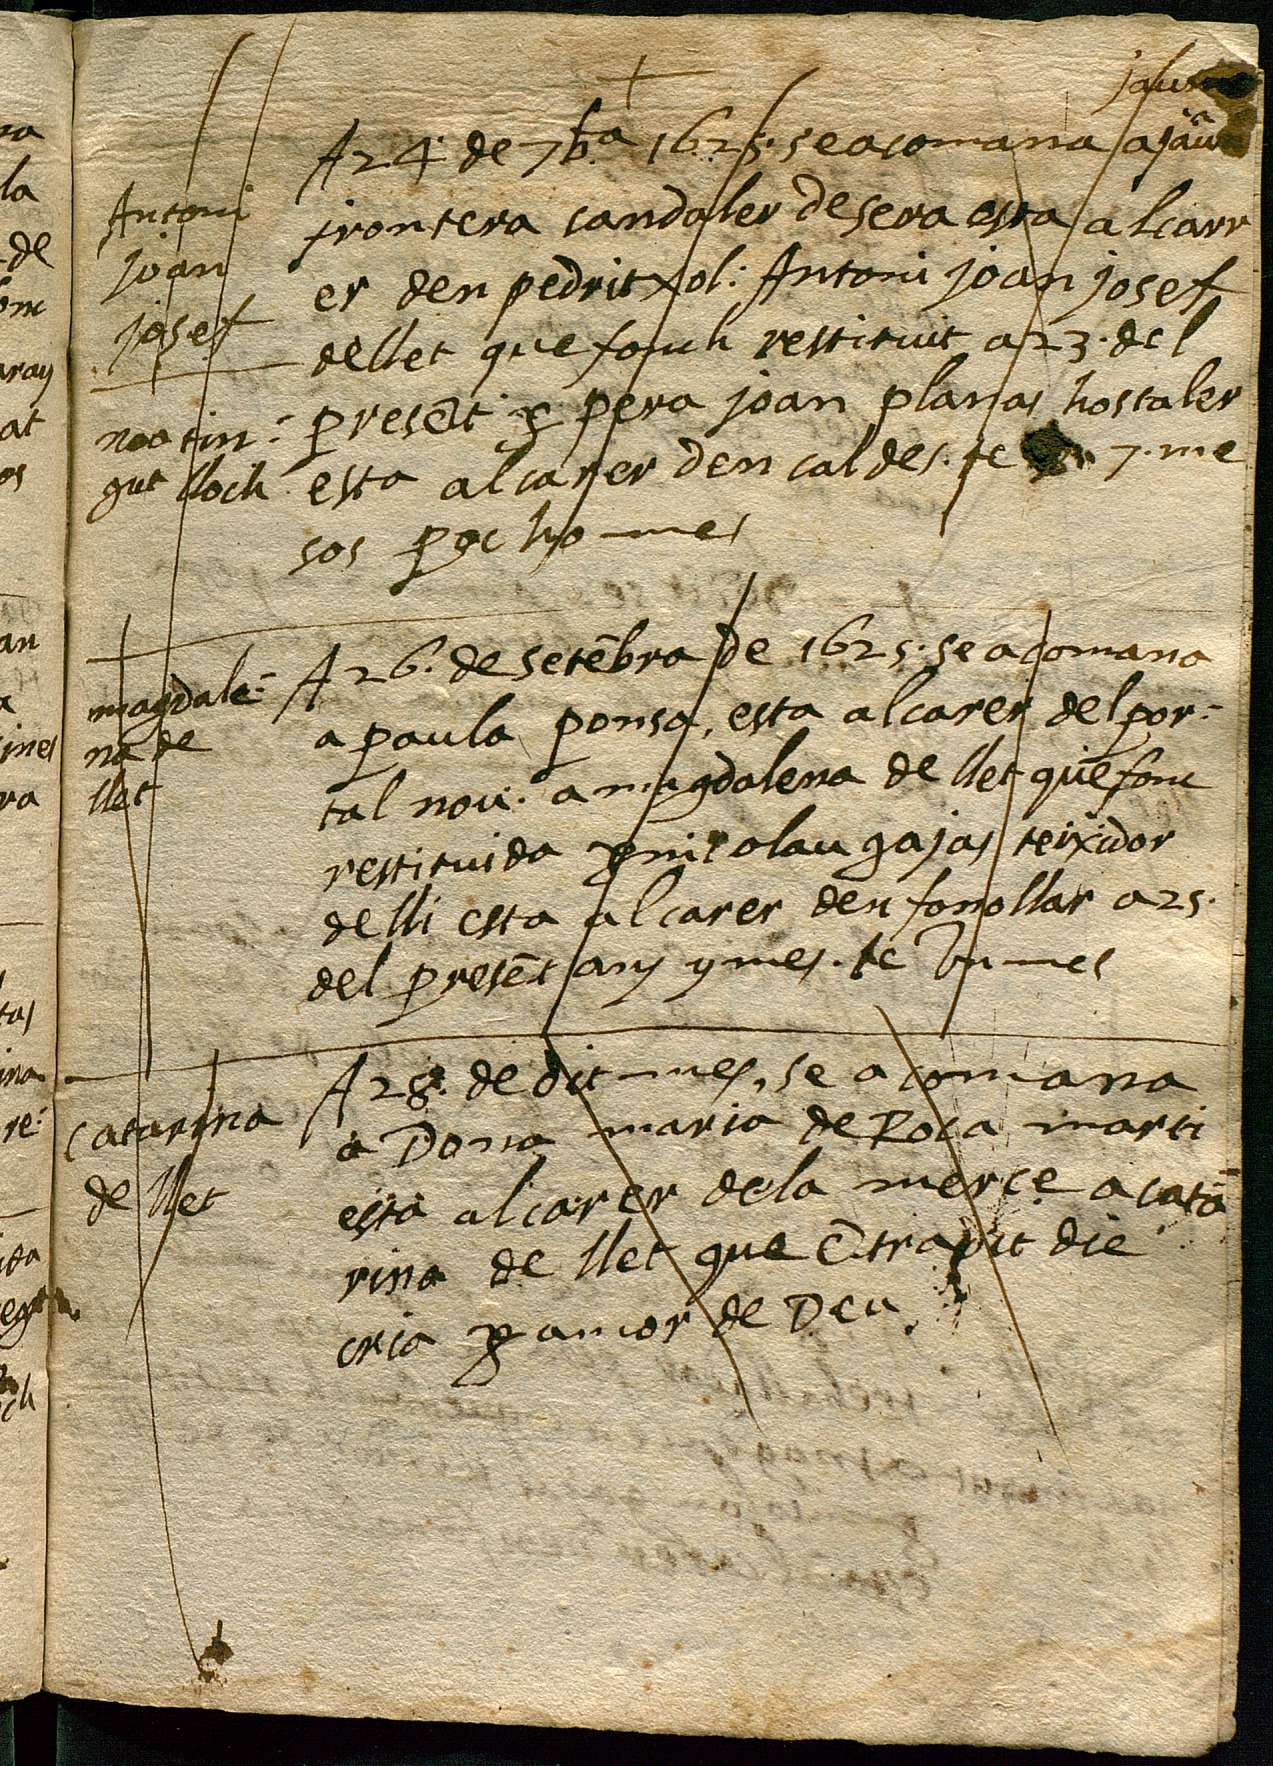 jaume
Antoni
joan
josef
no a tin-
gut lloch
A 24 de 7b.ra 1625. se acomana a jau
frontera candaler de sera esta al carr
er den pedritxol: Antoni joan josef
de llet que fouh restituit a 23. del
presēt ꝑ pera joan planas hostaler
esta al carer den caldes. te 7. me
sos poc ho mes
magdale-
na de
llet
A 26. de setēbra de 1625. se acomana
a paula ponsa, esta al carer del por-
tal nou. a magdalena de llet que fonc
restituida ꝑ nicolau gajas teixidor
de lli esta al carer den fonollar a 25.
del presēt any y mes. te vn mes
Catarina
de llet
A 28. de dit mes, se acomana
a Dona maria de Roca marti
esta al carer de la merce a cata
rina de llet que ētra dit die
cria ꝑ amor de Deu.